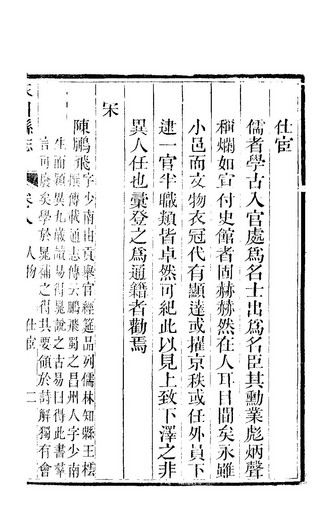 仕宦
儒者學古入官處爲名士出爲名臣其勳業彪炳聲
稱爛如宣付史館者固赫赫然在人耳目間矣永雖
小邑而文物衣冠代有顯達或擢京秩或任外員下
逮一官半職類皆卓然可紀此以見上致下澤之非
異人任也彙登之爲通籍者勸焉
宋
陳鵬飛字少南由貢襄官經筵品列儒林知縣王橒
撰傳載通志傳云鵬飛蜀之昌州人字少南
生而穎異九歲讀易得晁說之古易日得此書羣
言可廢矣學於晁補之得其要領於詩解獨有會
縣志 卷八 人物 仕宦 二